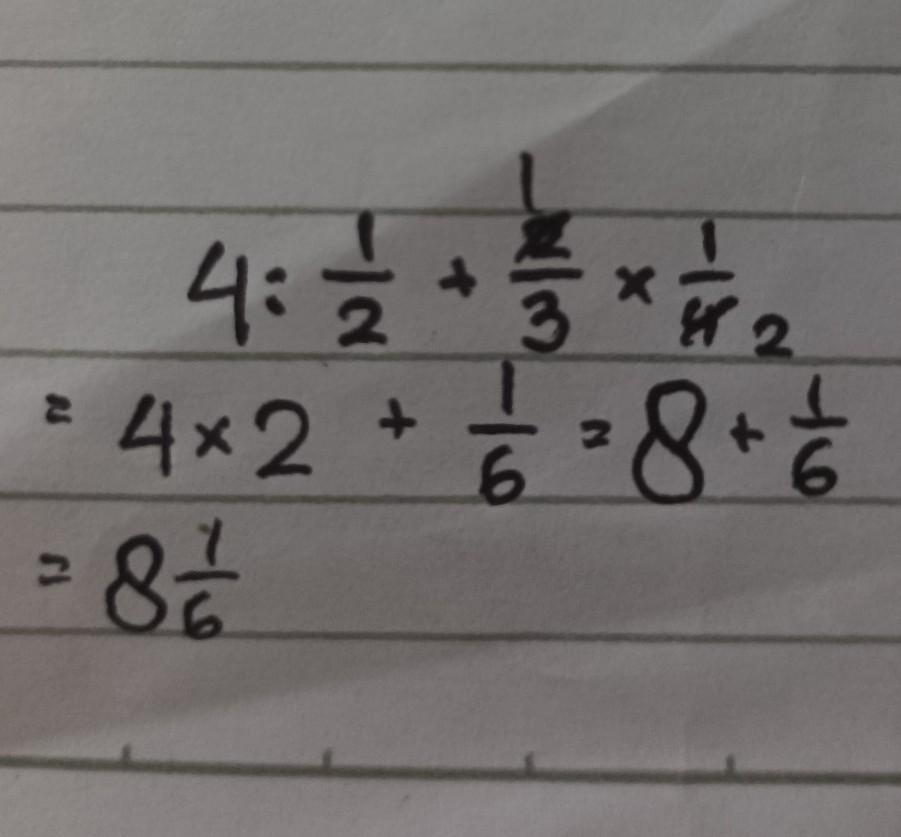 4 : 1/2 + 2/3 × 1/4 1 2
= 4 × 2 + 1/6 = 8 + 1/6
= 8 1/6